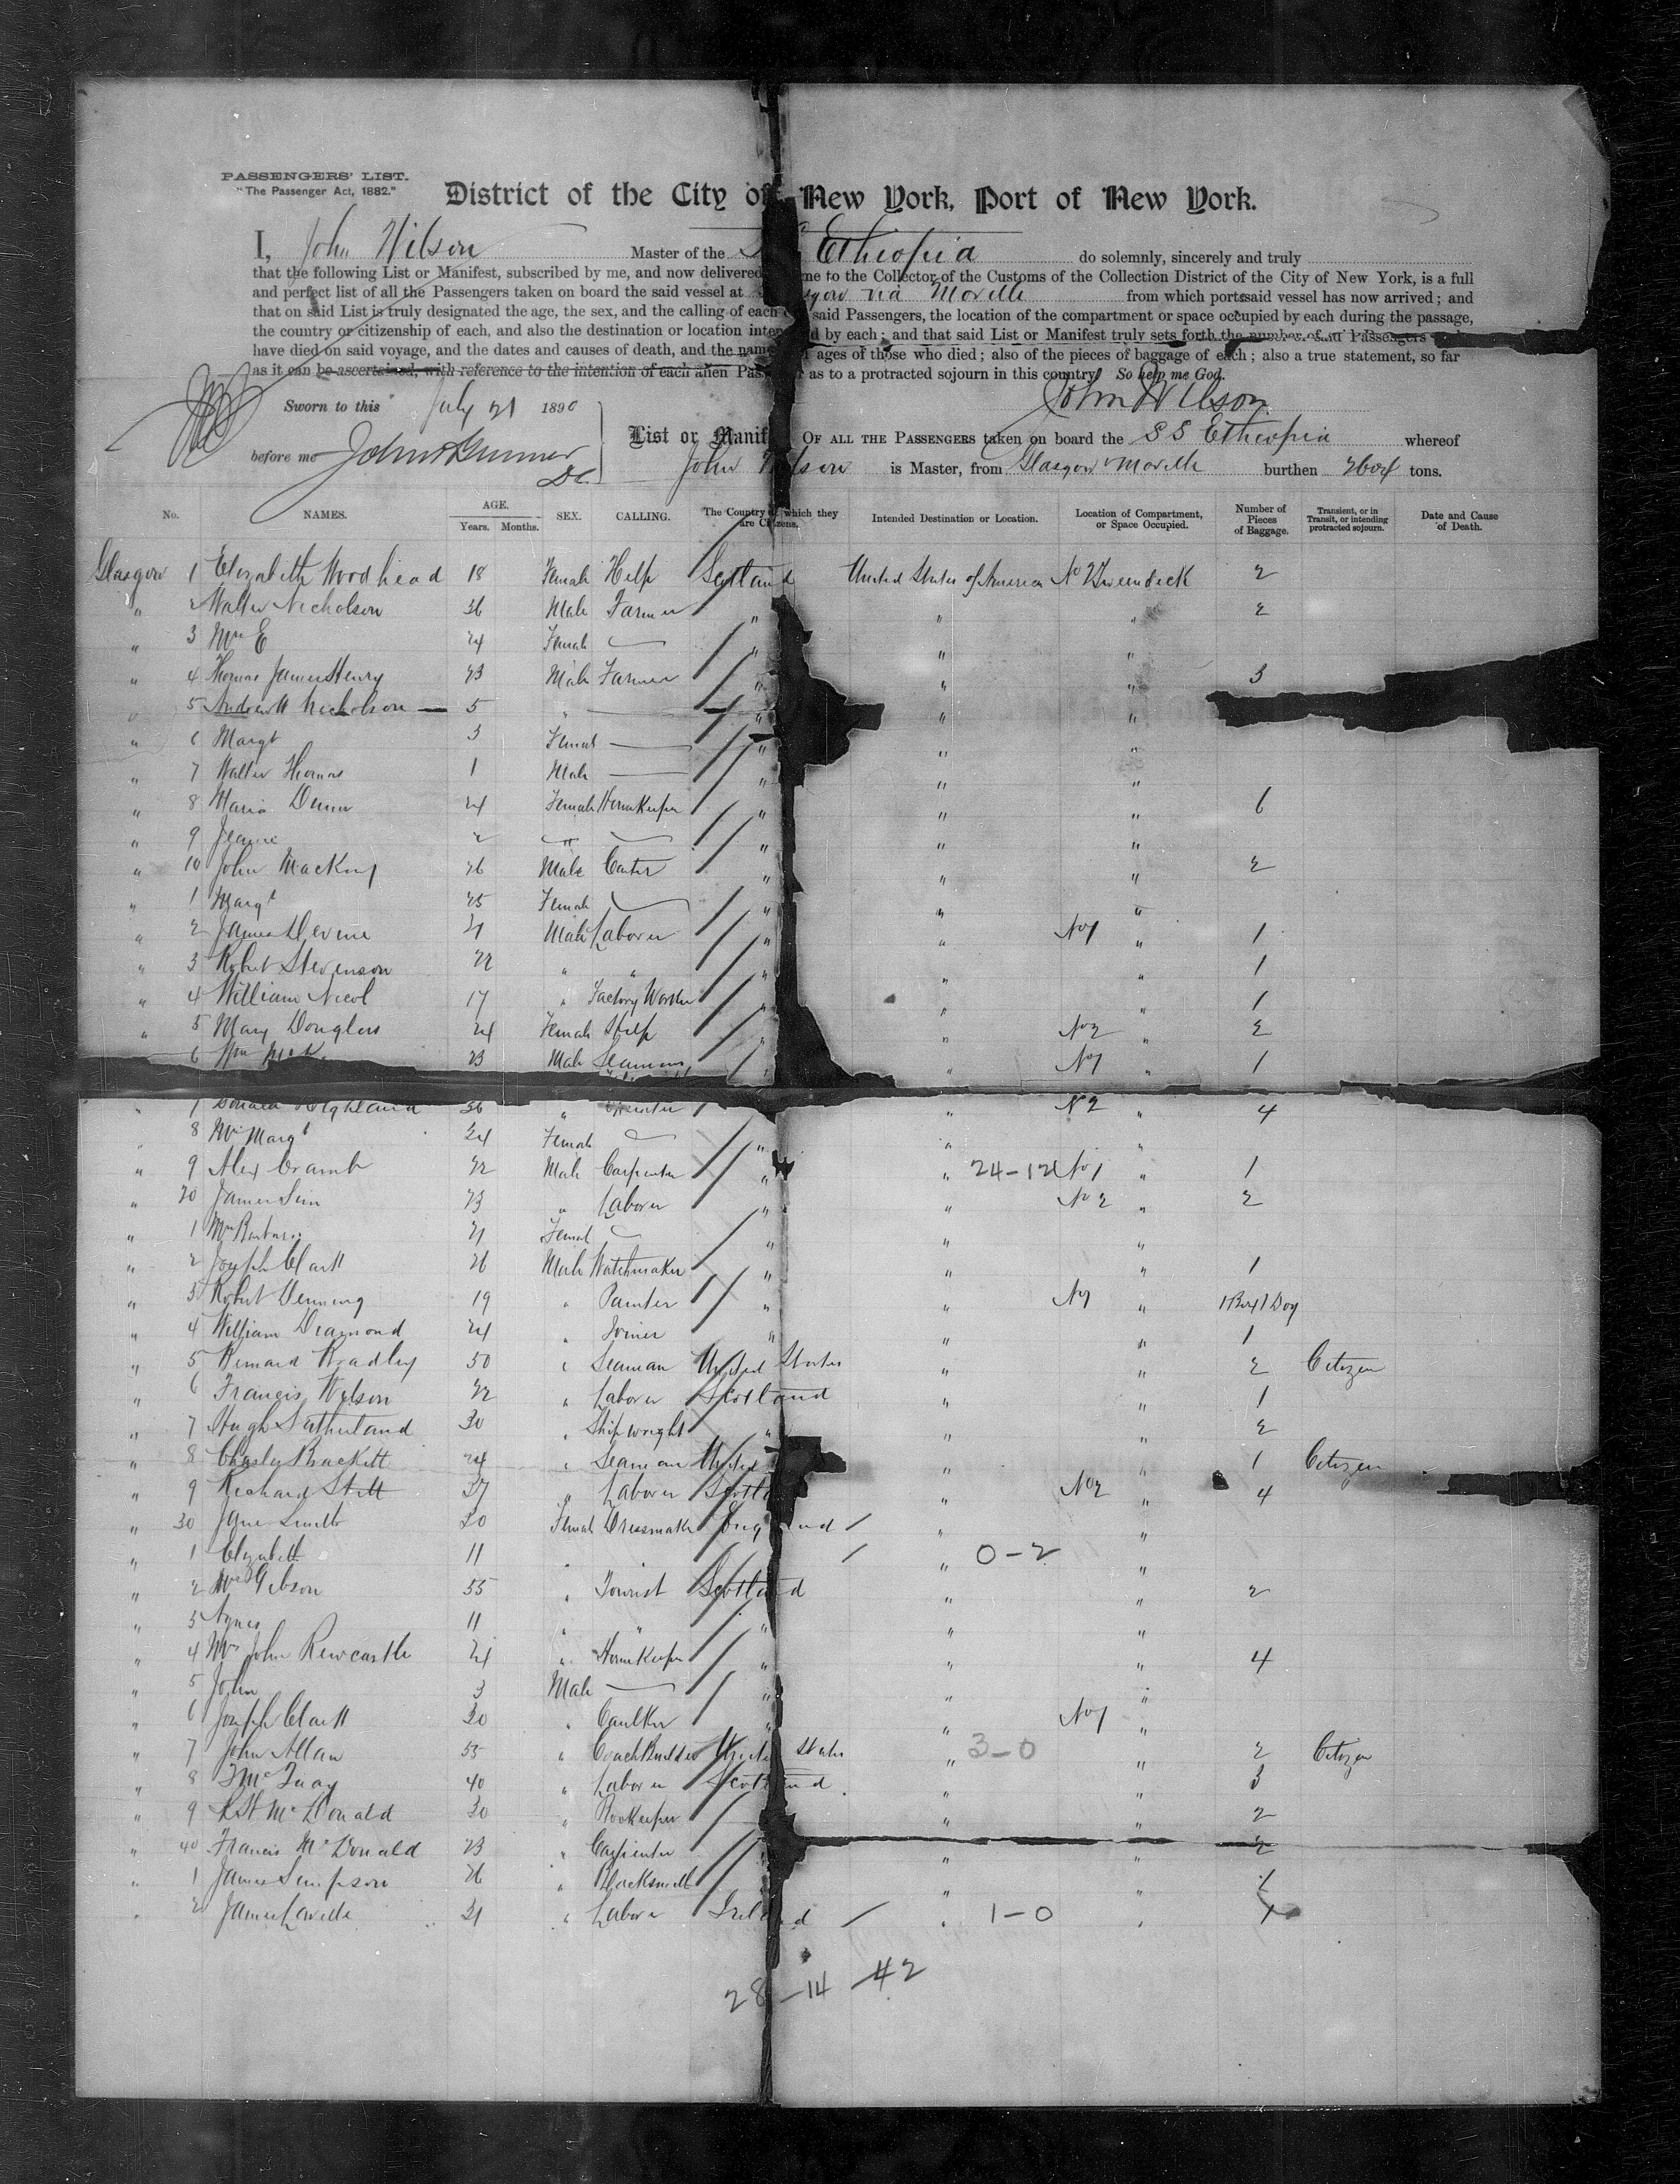 PASSENGERS' LIST.
"The Passenger Act, 1882."
District of the City of New York, Port of New York.
I, John Wilson Master of the Ethiopia do solemnly, sincerely and truly
that the following List or Manifest, subscribed by me, and now delivered me to the Collector of the Customs of the Collection District of the City of New York, is a full
and perfect list of all the Passengers taken on board the said vessel at via Moville from which port said vessel has now arrived; and
that on said List is truly designated the age, the sex, and the calling of each said Passengers, the location of the compartment or space occupied by each during the passage,
the country or citizenship of each, and also the destination or location by each; and that said List or Manifest truly sets forth the number of said Passengers
have died on said voyage, and the dates and causes of death, and the ages of those who died; also of the pieces of baggage of each; also a true statement, so far
as it can be ascertained, with reference to the intention of each alien as to a protracted sojourn in this country. So help me God.
John Wilson
Sworn to this July 21 1890
before me
List or Manifest OF ALL THE PASSENGERS taken on board the SS Ethiopia whereof
John Wilson is Master, from Glasgow & Moville burthen 2604 tons.
No. NAMES. AGE. Years. Months. SEX. CALLING. The Country of which they are Citizens. Intended Destination or Location. Location of Compartment, or Space Occupied. Number of Pieces of Baggage. Transient, or in Transit, or intending protracted sojourn. Date and Cause of Death.
Glasgow 1 Elizabeth Woodhead 18 Female Help Scotland United States of America No 2 2
" 2 Walter Nicholson 26 Male Farmer " " " 2
" 3 Mrs E 24 Female " " "
" 4 Thomas James Henry 23 Male Farmer " " " 3
" 5 Andrew Nicholson 5 " " " "
" 6 Margt 3 Female " " "
" 7 Walter Thomas 1 Male " " "
" 8 Maria Dunn 24 Female " " " 6
" 9 Jeanie 2 " " " "
" 10 John Mackay 26 Male Carter " " " 2
" 1 Margt 25 Female " " "
" 2 James Devine 21 Male Laborer " " No 1 " 1
" 3 Robert Stevenson 22 " " " " " 1
" 4 William Nicol 17 " Factory Worker " " " 1
" 5 Mary Douglas 24 Female Help " " No 2 2
" 6 Wm 23 Male " " No 1 " 1
Highland " " No 2 " 4
8 Mrs Margt 24 Female " " "
" 9 Alex Cramb 22 Male Carpenter " " 24-12 No 1 " 1
" 20 James Sim 23 " Laborer " " No 2 " 2
" 1 Mrs Barbara 21 Female " " "
" 2 Joseph Clark 26 Male Watchmaker " " " 1
" 3 Robert 19 " Painter " " No 1 " 1 Box 1 Dog
" 4 William 24 " Joiner " " " 1
" 5 Bernard Bradley 50 " Seaman United States " " 2 Citizen
" 6 Francis Wilson 22 " Laborer Scotland " " 1
" 7 Hugh Sutherland 30 " Shipwright " " " 2
" 8 Charles Brackett 24 " Seaman United " " 1 Citizen
" 9 Richard Stitt 37 " Laborer " No 2 " 4
" 30 Jane Smith 20 Female Dressmaker England " "
" 1 Elizabeth 11 " " 0-2 "
" 2 Mrs Gibson 55 " Tourist Scotland " " 2
" 3 Agnes 11 " " " " "
" 4 Mrs John Rewcastle 24 " " " " 4
" 5 John 3 Male " " "
" 6 Joseph Clark 30 " Caulker " " No 1 "
" 7 John Allan 55 " Coach Builder United States " 3-0 " 2 Citizen
" 8 40 " Laborer Scotland " " 3
" 9 McDonald 30 " Bookeeper " " 2
" 40 Francis McDonald 23 " Carpenter " " 2
" 1 James Simpson 26 " Blacksmith " " " 1
" 2 James 21 " Laborer Ireland " 1-0 " 1
28-14 42